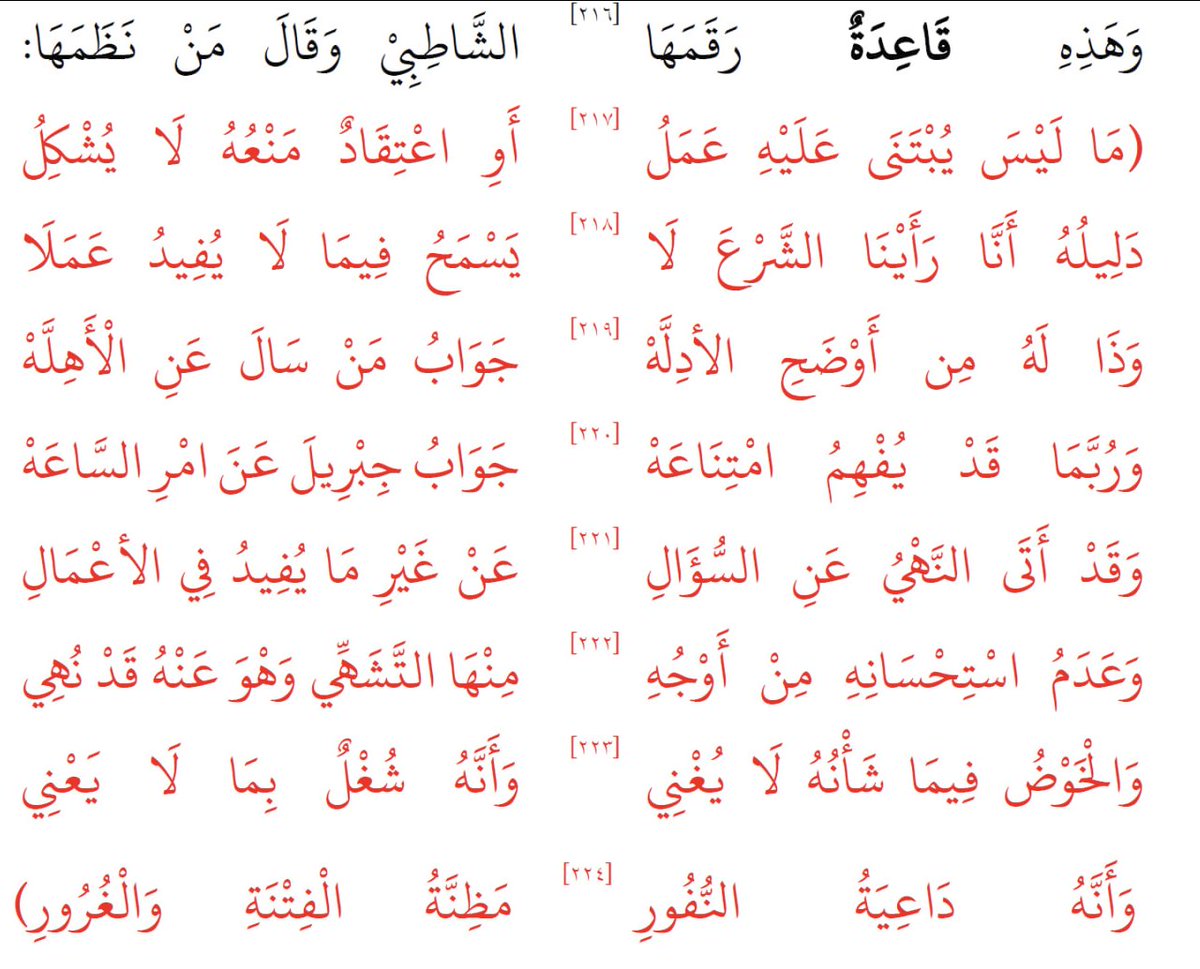 وَهَذِهِ قَاعِدَةٌ رَقَمَهَا [٢١٦] الشَّاطِبِيْ وَقَالَ مَنْ نَظَمَهَا:
(مَا لَيْسَ يُبْتَنَى عَلَيْهِ عَمَلُ [٢١٧] أَوِ اعْتِقَادٌ مَنْعُهُ لَا يُشْكِلُ
دَلِيلُهُ أَنَّا رَأَيْنَا الشَّرْعَ لَا [٢١٨] يَسْمَحُ فِيمَا لَا يُفِيدُ عَمَلَا
وَذَا لَهُ مِن أَوْضَحِ الأدِلَّهْ [٢١٩] جَوَابُ مَنْ سَالَ عَنِ الْأَهِلَّهْ
وَرُبَّمَا قَدْ يُفْهِمُ امْتِنَاعَهْ [٢٢٠] جَوَابُ جِبْرِيلَ عَنَ امْرِ السَّاعَهْ
وَقَدْ أَتَى النَّهْيُ عَنِ السُّؤَالِ [٢٢١] عَنْ غَيْرِ مَا يُفِيدُ فِي الأعْمَالِ
وَعَدَمُ اسْتِحْسَانِهِ مِنْ أَوْجُهِ [٢٢٢] مِنْهَا التَّشَهِّي وَهْوَ عَنْهُ قَدْ نُهِي
وَالْخَوْضُ فِيمَا شَأْنُهُ لَا يُغْنِي [٢٢٣] وَأَنَّهُ شُغْلٌ بِمَا لَا يَعْنِي
وَأَنَّهُ دَاعِيَةُ النُّفُورِ [٢٢٤] مَظِنَّةُ الْفِتْنَةِ وَالْغُرُورِ)